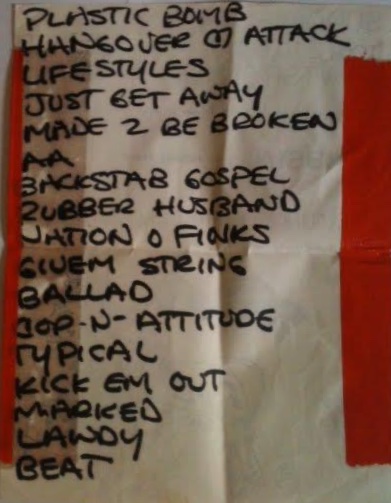 PLASTIC BOMB
HANGOVER ATTACK
LIFESTYLES
JUST GET AWAY
MADE 2 BE BROKEN
AA
BACKSTAB GOSPEL
RUBBER HUSBAND
NATION O FINKS
GIVEM STRING
BALLAD
BOP-N-ATTITUDE
TYPICAL
KICK EM OUT
MARKED
LAWDY
BEAT